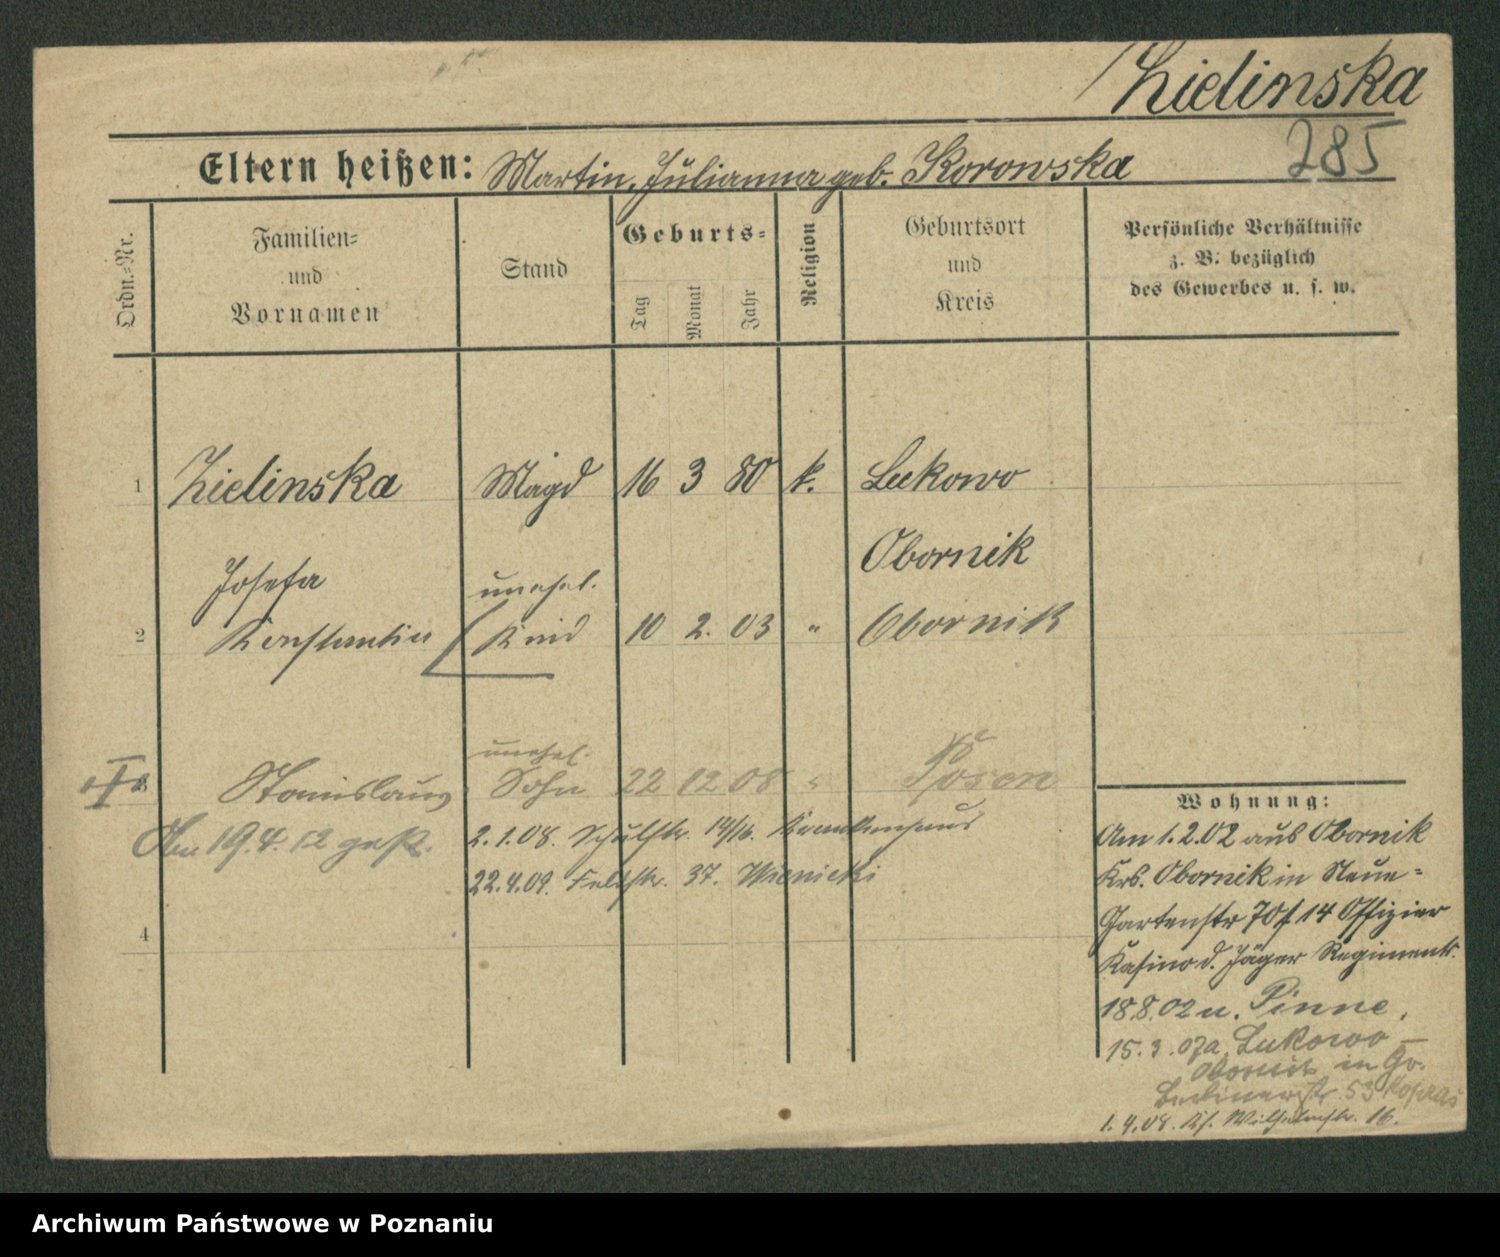 Zielinska
285
Eltern heißen: Martin, Julianna geb. Korowska
Ordn.-Nr.
Familien-
und
Vornamen
Stand
Geburts-
Tag
Monat
Jahr
Religion
Geburtsort
und
Kreis
Persönliche Verhältnisse
z. B. bezüglich
des Gewerbes u. s. w.
1 Zielinska Magd 16 3 80 k. Lukowo
Obornik
Josefa unehel.
2 Konstantin Kind 10 2. 03 " Obornik
unehel.
3 Stanislaus Sohn 22 12 08 " Posen
Am 19.4.12 gest.
2.1.08. Schulstr. 14/16. Krankenhaus
22.4.09. Feldstr. 37. Wienicki
4
Wohnung:
Am 1.2.02 aus Obornik
Krs. Obornik in Neue-
Gartenstr 70/ 14 Offizier
Kasino d. Jäger Regiments.
18.8.02 n. Pinne.
15.3.07 a. Lukowo –
Obornik in Gr.
Berlinerstr. 53
1.4.08. Wilhelmstr. 16.
Archiwum Państwowe w Poznaniu